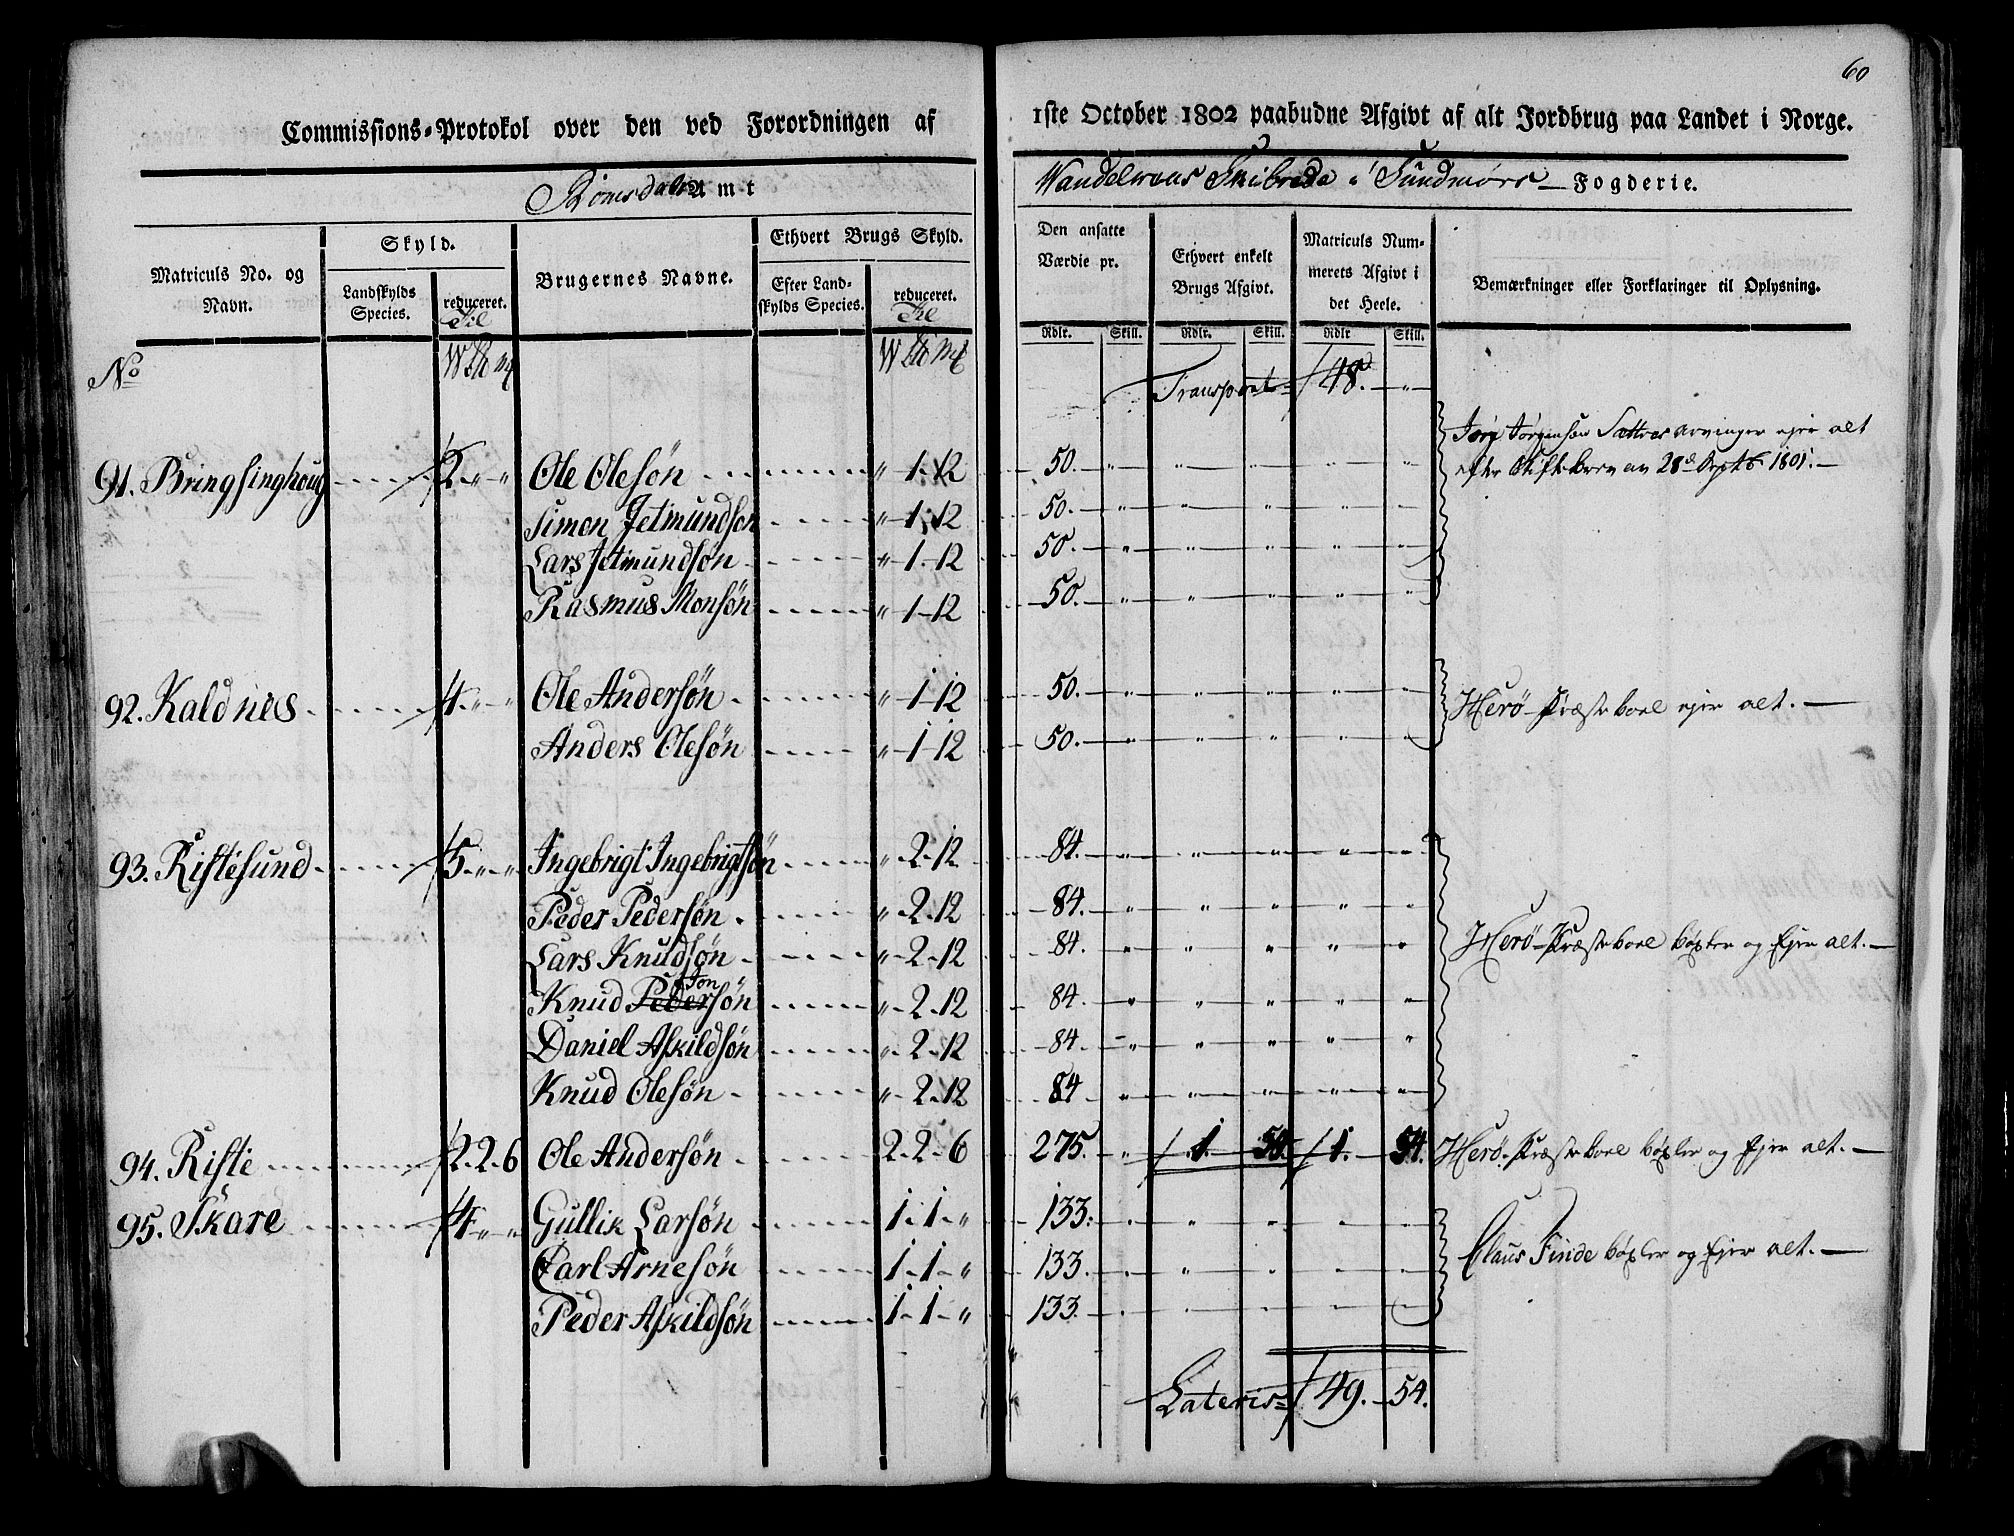 60
Commissions-Protokol over den ved Forordningen af 1ste October 1802 paabudne Afgivt af alt Jordbrug paa Landet i Norge.
Romsdals Amt Skibrede i Sundmørs Fogderie.
Matriculs No. og Navn.
Skyld.
Landskylds Species.
reduceret.
Brugernes Navne.
Ethvert Brugs Skyld.
Efter Landskylds Species.
reduceret.
Den ansatte Værdie pr.
Ethvert enkelt Brugs Afgivt.
Matriculs Nummerets Afgivt i det Heele.
Bemærkninger eller Forklaringer til Oplysning.
Rdlr. Skill. Rdlr. Skill. Rdlr Skill.
No
Transport 48. "
91. Bringsinghoug 2 " " Ole Olesön " 1 12 50. " " " " " Jørgensen Sættres arvinger ejer alt
efter Skiftebrev av 28de Septb 1801.
Simon Jetmundson " 1 12 50. " " " " "
Lars Jetmundson " 1 12 50. " " " " "
Rasmus Monsön " 1 12 50. " " " " "
92. Kaldnes 4 " " Ole Andersön " 1 12 50. " " " " " Herö Præsteboel ejer alt.
Anders Olesön " 1 12 50. " " " " "
93. Ristesund 5 " " Ingebrigt Ingebrigtsön " 2 12 84. " " " " "
Peder Pedersön " 2 12 84. " " " " "
Lars Knudsön " 2 12 84. " " " " " Herö Præsteboel böxler og Ejer alt.
Knud Pedersön Jon " 2 12 84. " " " " "
Daniel Askildsön " 2 12 84. " " " " "
Knud Olesön " 2 12 84 " " " " "
94. Riste 2. 2. 6 Ole Andersön 2 2 6 275. " 1. 54. 1. 54. Herö Præsteboel böxler og Ejer alt.
95. Skare 4 " " Gullik Larsön 1 1 " 133. " " " " "
Carl Arnesön 1 1 " 133. " " " " " Claus Finde böxler og Ejer alt.
Peder Askildsön 1 1 " 133. " " " " "
Lateris 49. 54.